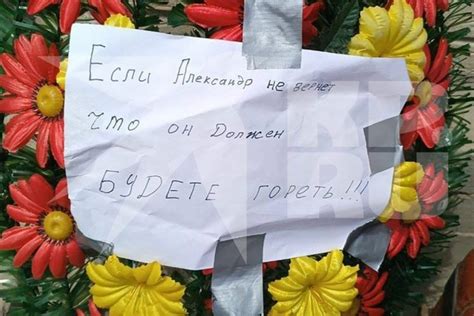 Если Александр не вернет
что он должен
БУДЕТЕ гореть!!!
KP.RU